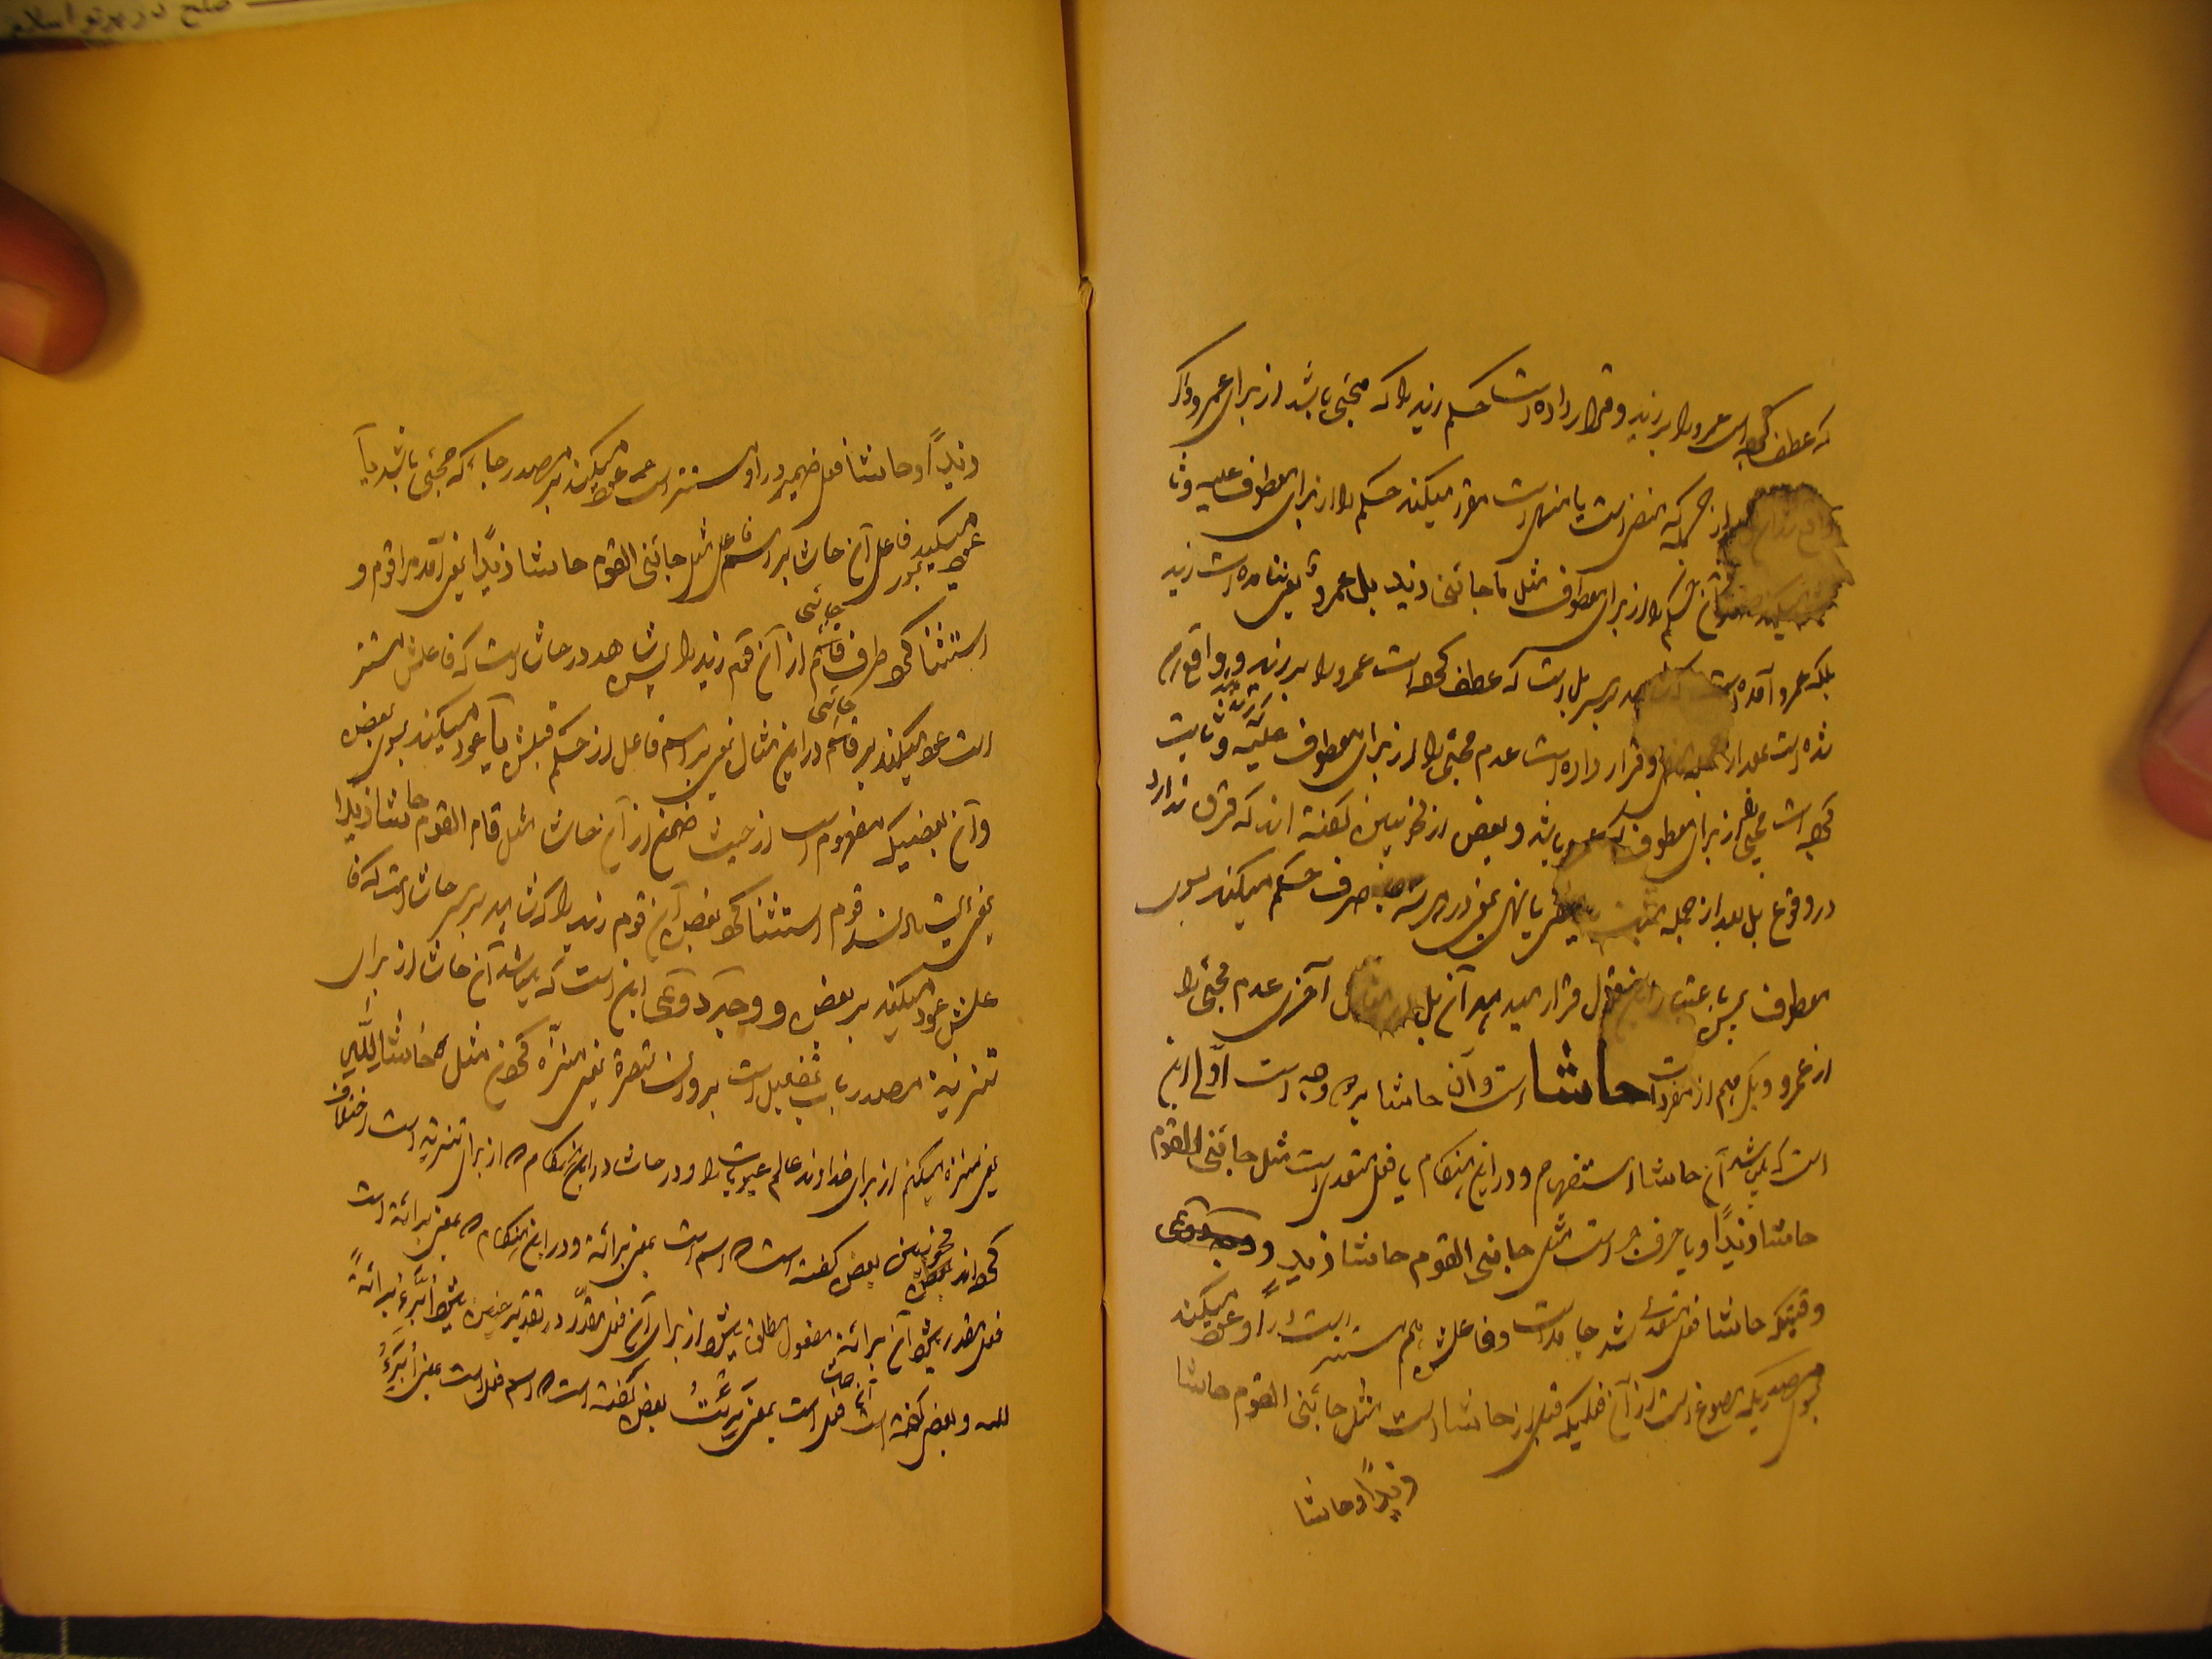 که عطف کرده است عمرو را بر زید و قرار داده است حکم زید را که مجئی باشد از برای عمرو و اگر
از جمله که نفی است یا نهی است مقرر میکند حکم را از برای معطوف علیه و ثا
آن حکم را از برای معطوف مثل ما جائنی زید بل عمرو یعنی نیامده است زید
بلکه عمرو آمده است بر سر بل است که عطف کرده است عمرو را بر زید و واقع
شده است بعد از و قرار داده است عدم مجئی را از برای معطوف علیه و ثابت
کرده است مجئی از برای معطوف که عمرو باشد و بعضی از نحویین گفته اند که فرق ندارد
در وقوع بل بعد از جمله یا نهی یعنی در هر سه صرف حکم میکند بسوی
معطوف پس باعتبار این قول قرار میدهد آن بل آخری عدم مجئی را
از عمرو و یکی هم از مفردات حاشا است و آن حاشا بر وجه است اول این
است که میباشد آن حاشا استفهام و در این هنگام یا فعل متعدی است مثل جائنی القوم
حاشا زیداً و یا حرف جر است مثل جائنی القوم حاشا زید و وجه دوم
وقتیکه حاشا فعل متعدی شد جامد است و فاعلش هم مستتر است و عود میکند
بسوی مصدریکه مصوغ است از آن فعلیکه قبل از حاشا است مثل جائنی القوم حاشا
زیداً و حاشا
زیداً و حاشا فعل ضمیر در او مستتر است عود میکند بر مصدر جاء که مجئی باشد یا
عود میکند فاعل آن حاشا بر اسم فاعل مثل جائنی القوم حاشا زیداً یعنی آمد مرا قوم و
جائی
استثنا کرد طرف قائم از آن قوم زید را پس شاهد در حاشا است که فاعلش مستتر
جائی
است عود میکند بر قائم در این مثال یعنی بر اسم فاعل از حکم قبلش یا عود میکند بسوی بعض
و آن بعضیکه مفهوم است از حیث ضمن از آن حاشا مثل قام القوم حاشا زیدا
یعنی ایستادند قوم استثنا کرد بعض آن قوم زید را که شاهد بر سر حاشا است که فا
علش عود میکند بر بعض و وجه دوم این است که میباشد آن حاشا از برای
تنزیه مصدر باب تفعیل است بر وزن تبصرة یعنی منزه کردن مثل حاشا لله
یعنی منزه میکنم از برای خداوند عالم عیوبات را و در حاشا در این هنگام که از برای تنزیه است اختلاف
کرده اند نحویین بعض گفته است که اسم است بمعنی برائة و در این هنگام که بمعنی برائة است
فعل مقدر میشود آن برائة مفعول مطلق میشود از برای آن فعل مقدر در تقدیر چنین میشود أبرّء برائةً
لله و بعض گفته است آن حاشا فعل است بمعنی برئت بعض گفته است که اسم فعل است بمعنی أبرّء